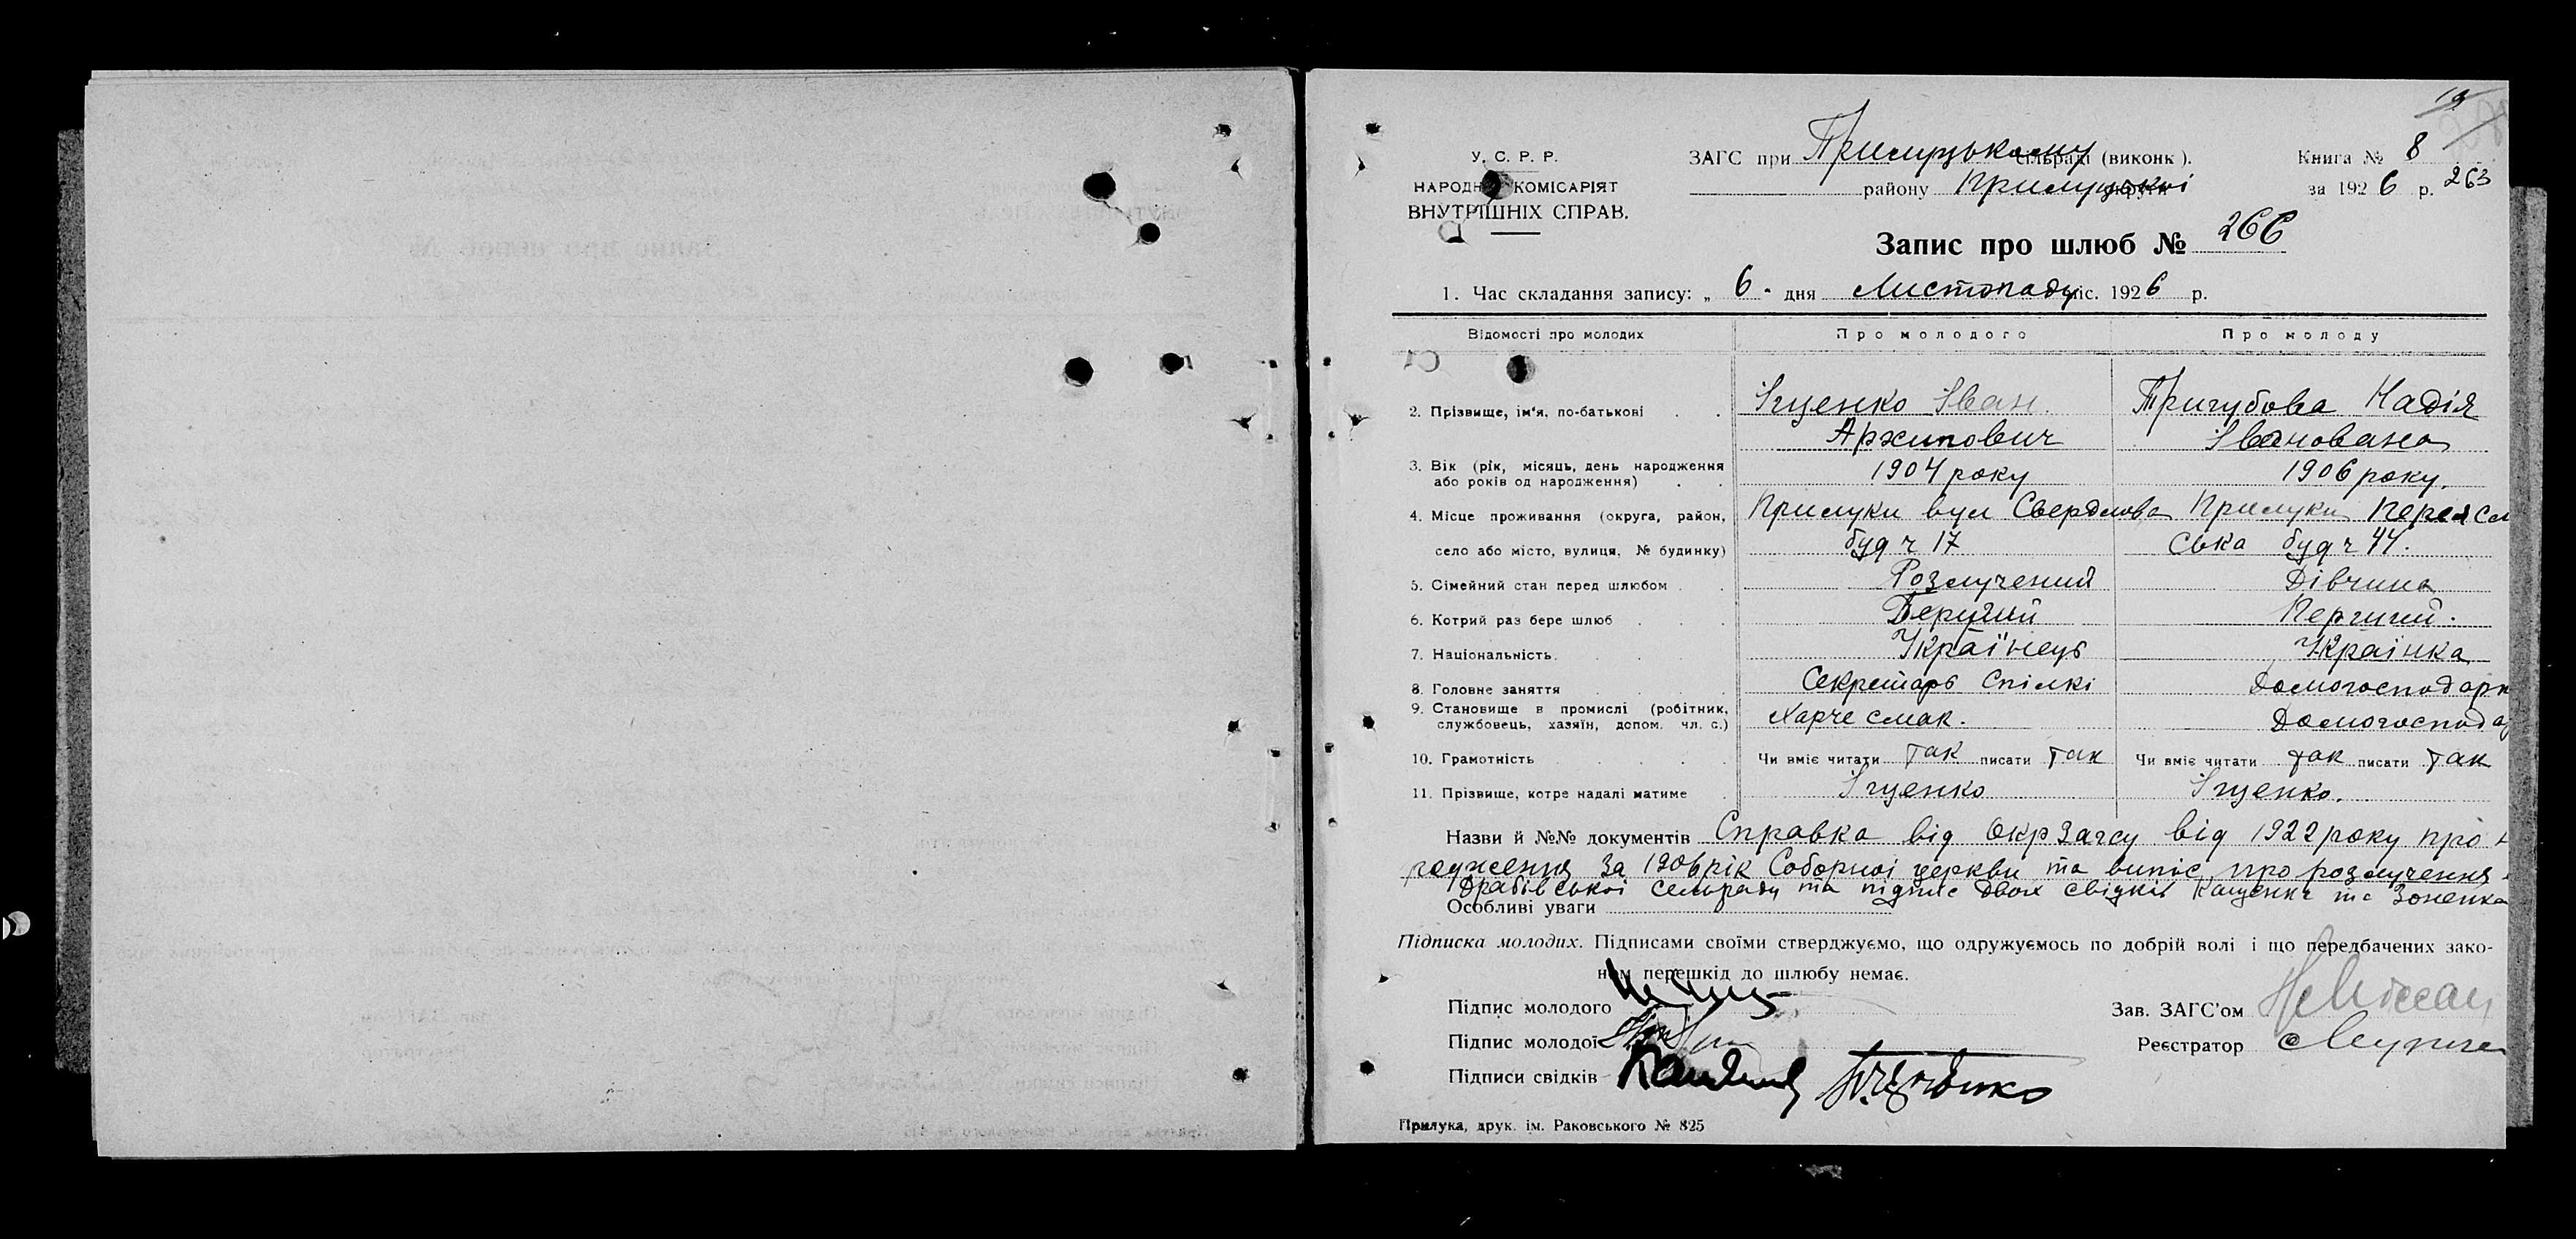 19
У. С. Р. Р.
НАРОДН КОМІСАРІЯТ
ВНУТРІШНІХ СПРАВ.
ЗАГС при Прилуцькому сільраді (виконк).
району Прилуцької округи
Книга № 8
за 1926 р. 263
Запис про шлюб № 266
1. Час складання запису: „ 6 - дня Листопаду міс. 1926 р.
Відомості про молодих Про молодого Про молоду
2. Прізвище, ім'я, по-батькові Іщенко Іван Тригубова Надія
Архипович Івановна
3. Вік (рік, місяць, день народження 1904 року 1906 року.
або років од народження)
4. Місце проживання (округа, район, Прилуки вул Свердлова Прилуки Переясл
село або місто, вулиця, № будинку) буд ч 17 ська буд ч 44.
5. Сімейний стан перед шлюбом Розлучений Дівчина
6. Котрий раз бере шлюб Перший.
7. Національність Українець Українка
8. Головне заняття Секретарь Спілкі Домогосподарк
9. Становище в промислі (робітник, Харчесмак. Домогоспода
службовець, хазяїн, допом. чл. с.)
10. Грамотність Чи вміє читати так писати так Чи вміє читати так писати так
11. Прізвище, котре надалі матиме Іщенко Іщенко.
Назви й №№ документів Справка від ОкрЗагсу від 1922 року про
родження за 1906 рік Соборної церкви та випіс про розлучення
Драбівської сельради та підпис двох свідків Кащенка та
Особливі уваги
Підписка молодих. Підписами своїми стверджуємо, що одружуємось по добрій волі і що передбачених зако-
ном перешкід до шлюбу немає.
Підпис молодого
Зав. ЗАГС'ом
Підпис молодої
Реєстратор
Підписи свідків
Прилука, друк. ім. Раковського № 825